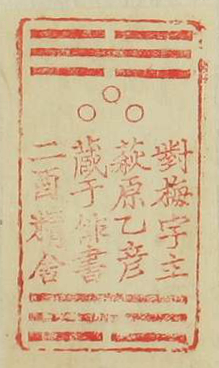 對梅宇主
萩原乙彦
藏于俳書
二酉精舍